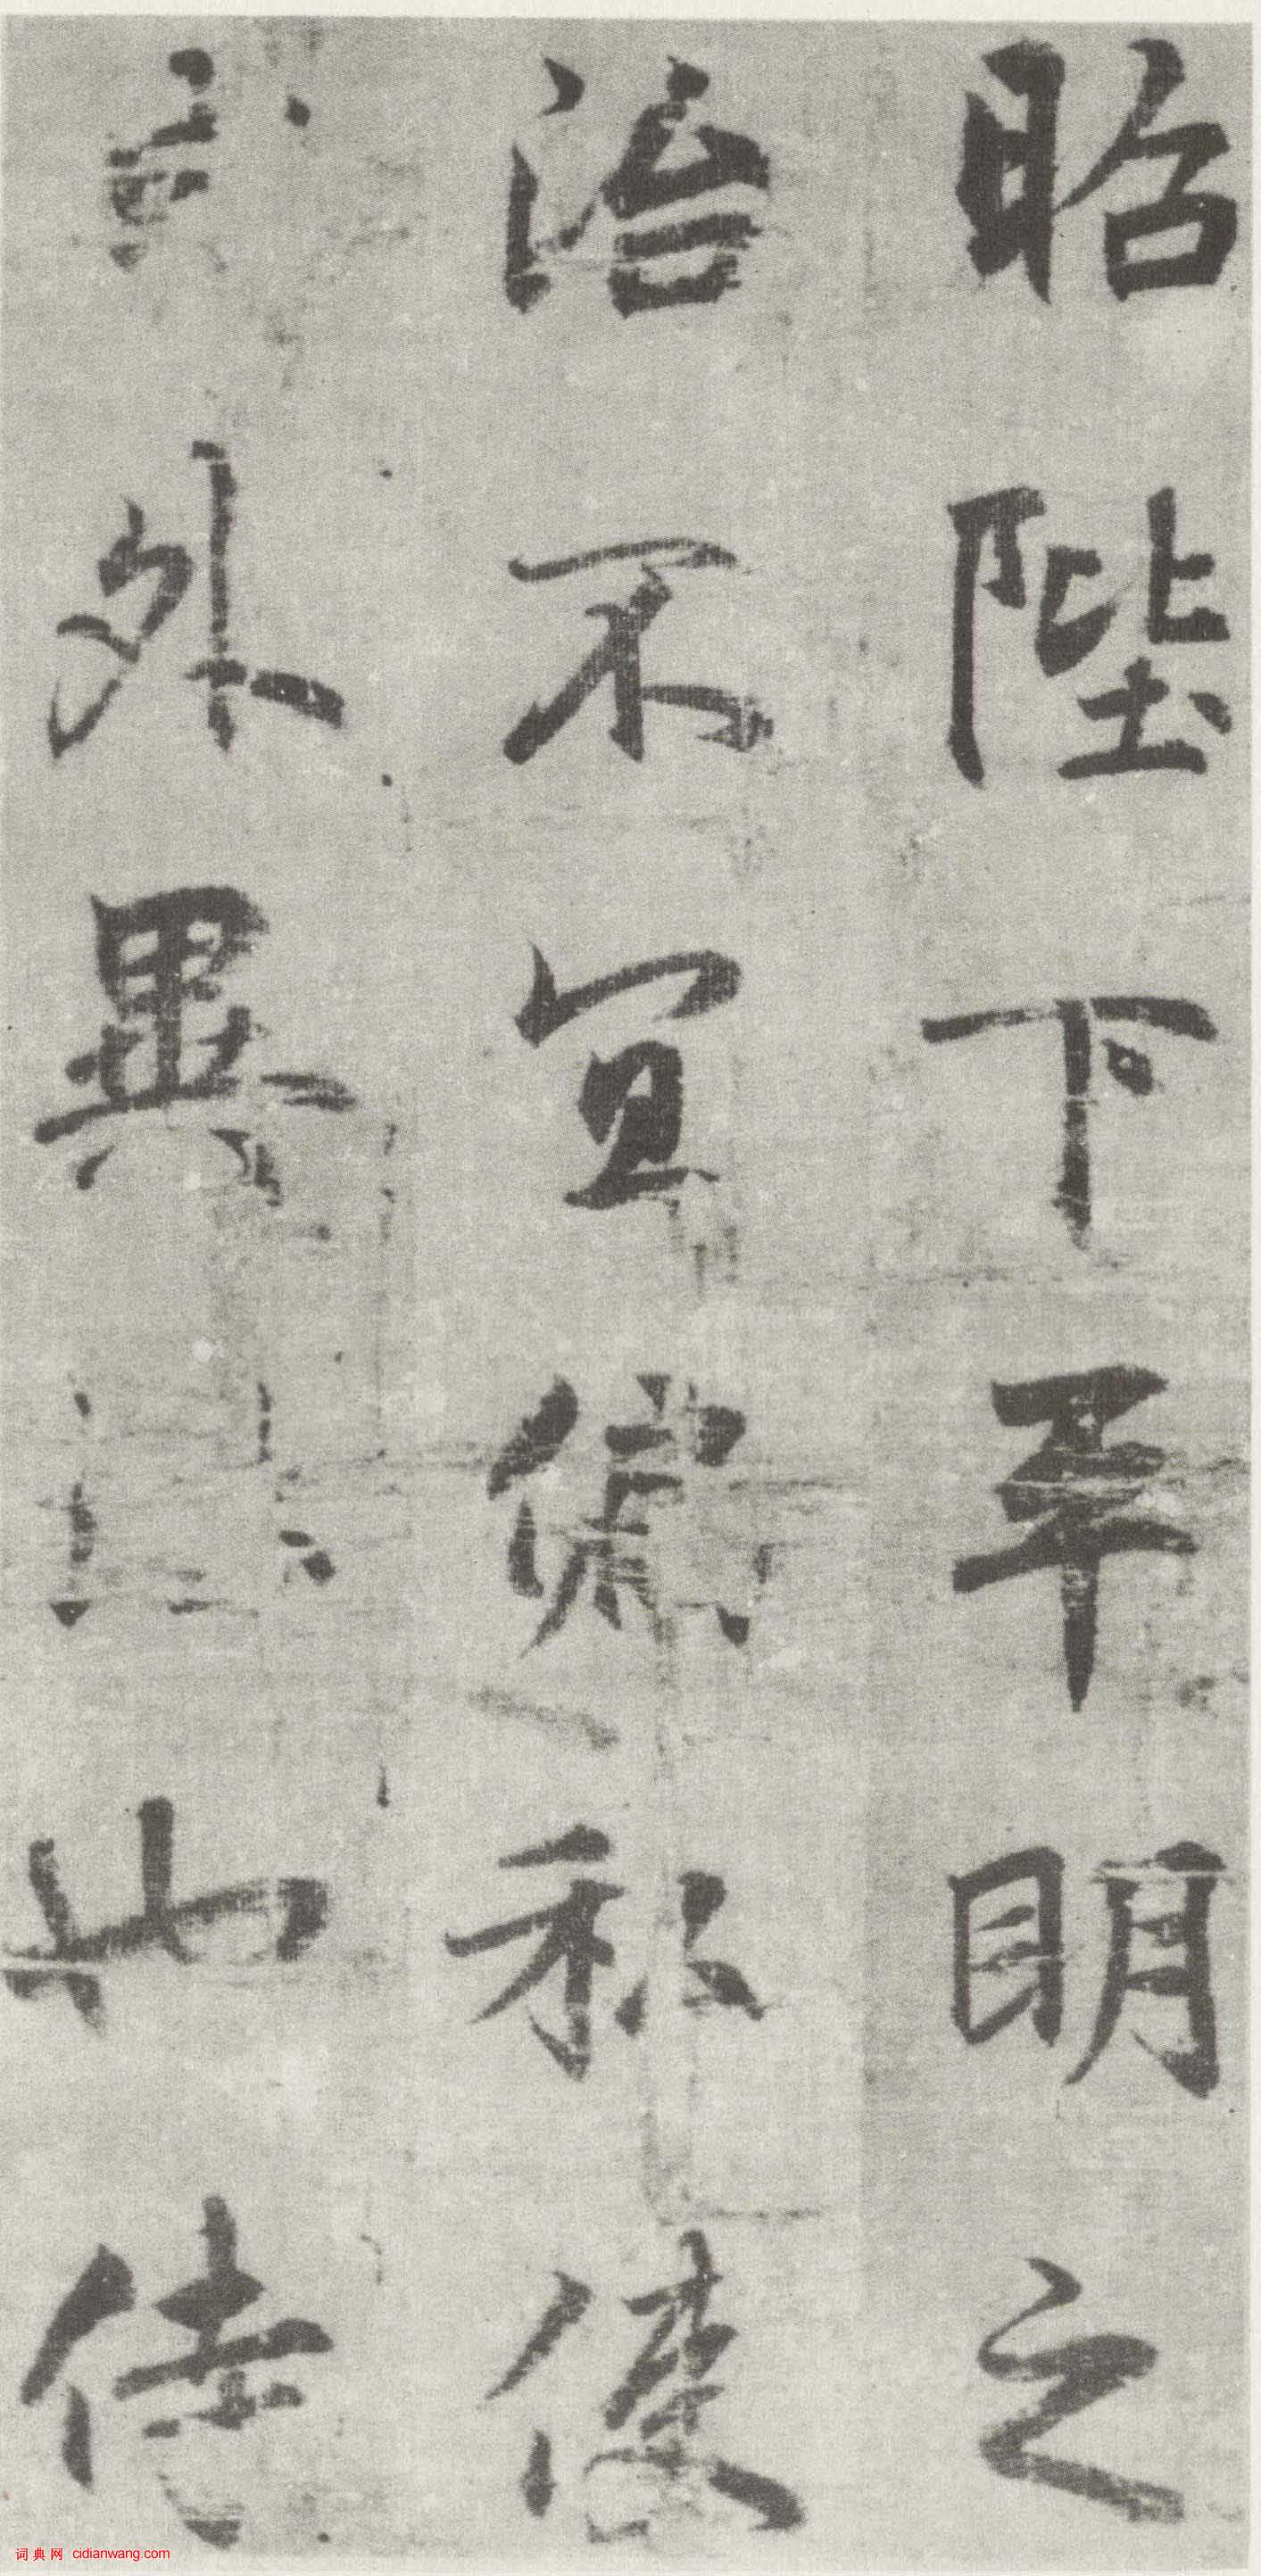 昭陛下平明之
治不宜偏私使
外異也侍
词典网 cidianwang.com